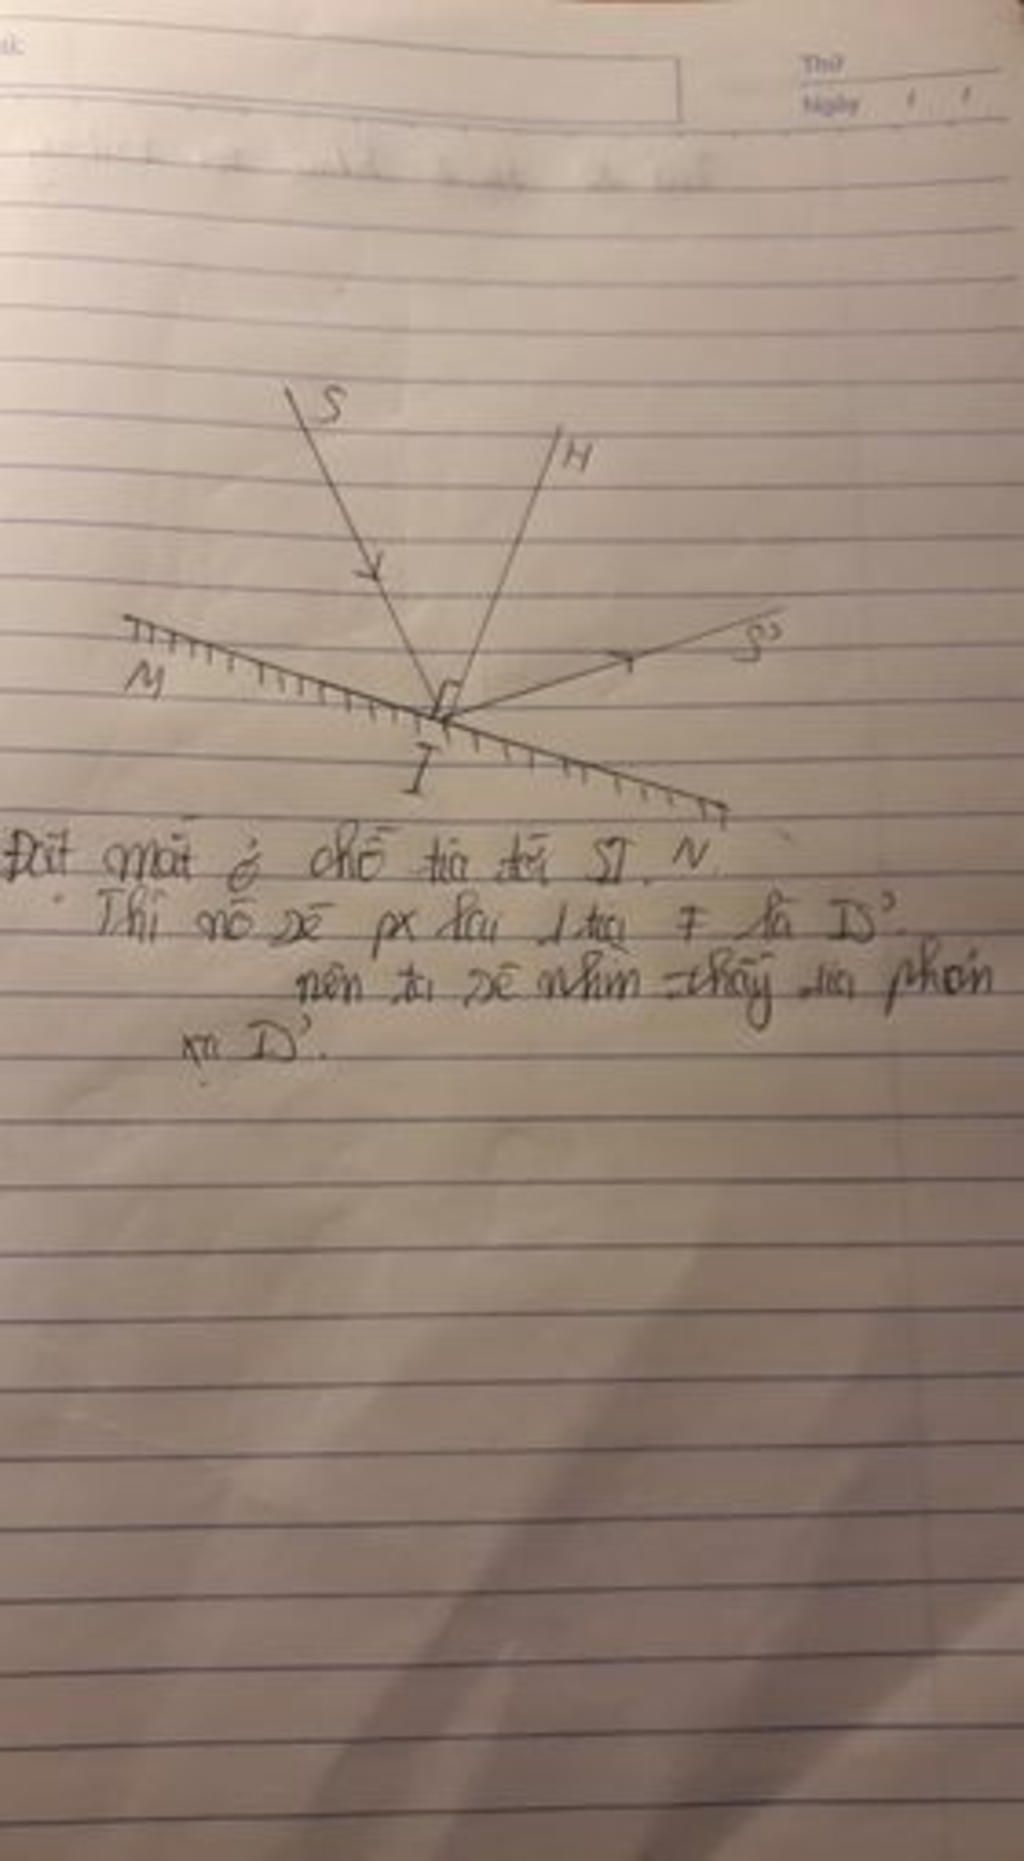 Thứ
Ngày
S
H
S'
M
I
N
Đặt mắt ở chỗ tia tới SI.
Thì nó sẽ px lại 1 tia # là IS'.
nên ta sẽ nhìn thấy tia phản
xạ IS'.